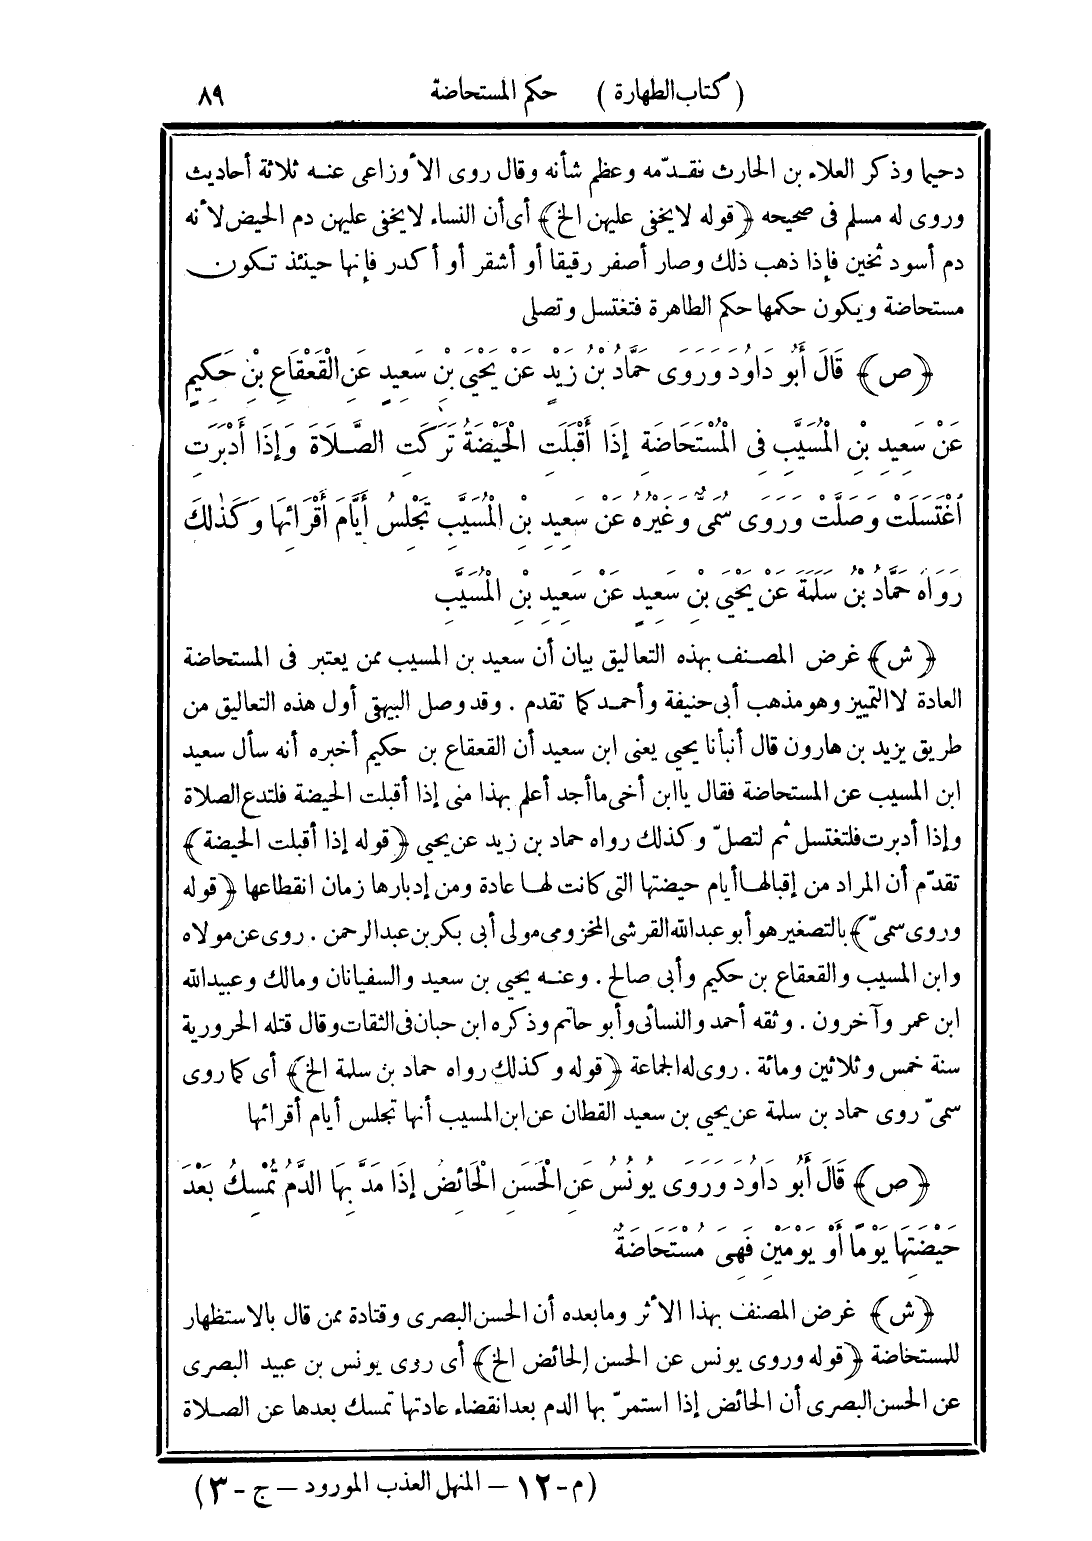 (كتاب الطهارة) حكم المستحاضة ٨٩
دحيما وذكر العلاء بن الحارث نقدّمه وعظم شأنه وقال روى الأوزاعى عنه ثلاثة أحاديث
وروى له مسلم فى صحيحه ﴿قوله لايخفى عليهن الخ﴾ أى أن النساء لايخفى عليهن دم الحيض لأنه
دم أسود ثخين فإذا ذهب ذلك وصار أصفر رقيقا أو أشقر أو أكدر فإنها حينئذ تكون
مستحاضة ويكون حكمها حكم الطاهرة فتغتسل وتصلى
﴿ص﴾ قَالَ أَبُو دَاوُدَ وَرَوَى حَمَّادُ بْنُ زَيْدٍ عَنْ يَحْيَى بْنِ سَعِيدٍ عَنِ الْقَعْقَاعِ بْنِ حَكِيمٍ
عَنْ سَعِيدِ بْنِ الْمُسَيَّبِ فِى الْمُسْتَحَاضَةِ إِذَا أَقْبَلَتِ الْحَيْضَةُ تَرَكَتِ الصَّلَاةَ وَإِذَا أَدْبَرَتِ
اغْتَسَلَتْ وَصَلَّتْ وَرَوَى سُمَىٌّ وَغَيْرُهُ عَنْ سَعِيدِ بْنِ الْمُسَيَّبِ تَجْلِسُ أَيَّامَ أَقْرَائِهَا وَكَذٰلِكَ
رَوَاهُ حَمَّادُ بْنُ سَلَمَةَ عَنْ يَحْيَى بْنِ سَعِيدٍ عَنْ سَعِيدِ بْنِ الْمُسَيَّبِ
﴿ش﴾ غرض المصنف بهذه التعاليق بيان أن سعيد بن المسيب ممن يعتبر فى المستحاضة
العادة لا التمييز وهو مذهب أبى حنيفة وأحمد كما تقدم . وقد وصل البيهقى أول هذه التعاليق من
طريق يزيد بن هارون قال أنبأنا يحيى يعنى ابن سعيد أن القعقاع بن حكيم أخبره أنه سأل سعيد
ابن المسيب عن المستحاضة فقال ياابن أخى ما أجد أعلم بهذا منى إذا أقبلت الحيضة فلتدع الصلاة
وإذا أدبرت فلتغتسل ثم لتصلّ وكذلك رواه حماد بن زيد عن يحيى ﴿قوله إذا أقبلت الحيضة﴾
تقدّم أن المراد من إقبالها أيام حيضتها التى كانت لها عادة ومن إدبارها زمان انقطاعها ﴿قوله
وروى سمىّ﴾ بالتصغير هو أبو عبدالله القرشى المخزومى مولى أبى بكر بن عبدالرحمن . روى عن مولاه
وابن المسيب والقعقاع بن حكيم وأبى صالح . وعنه يحيى بن سعيد والسفيانان ومالك وعبيدالله
ابن عمر وآخرون . وثقه أحمد والنسائى وأبو حاتم وذكره ابن حبان فى الثقات وقال قتله الحرورية
سنة خمس وثلاثين ومائة . روى له الجماعة ﴿قوله وكذلك رواه حماد بن سلمة الخ﴾ أى كما روى
سمىّ روى حماد بن سلمة عن يحيى بن سعيد القطان عن ابن المسيب أنها تجلس أيام أقرائها
﴿ص﴾ قَالَ أَبُو دَاوُدَ وَرَوَى يُونُسُ عَنِ الْحَسَنِ الْحَائِضُ إِذَا مَدَّ بِهَا الدَّمُ تُمْسِكُ بَعْدَ
حَيْضَتِهَا يَوْمًا أَوْ يَوْمَيْنِ فَهِىَ مُسْتَحَاضَةٌ
﴿ش﴾ غرض المصنف بهذا الأثر ومابعده أن الحسن البصرى وقتادة ممن قال بالاستظهار
للمستحاضة ﴿قوله وروى يونس عن الحسن الحائض الخ﴾ أى روى يونس بن عبيد البصرى
عن الحسن البصرى أن الحائض إذا استمرّ بها الدم بعد انقضاء عادتها تمسك بعدها عن الصلاة
(م - ١٢ - المنهل العذب المورود - ج - ٣)